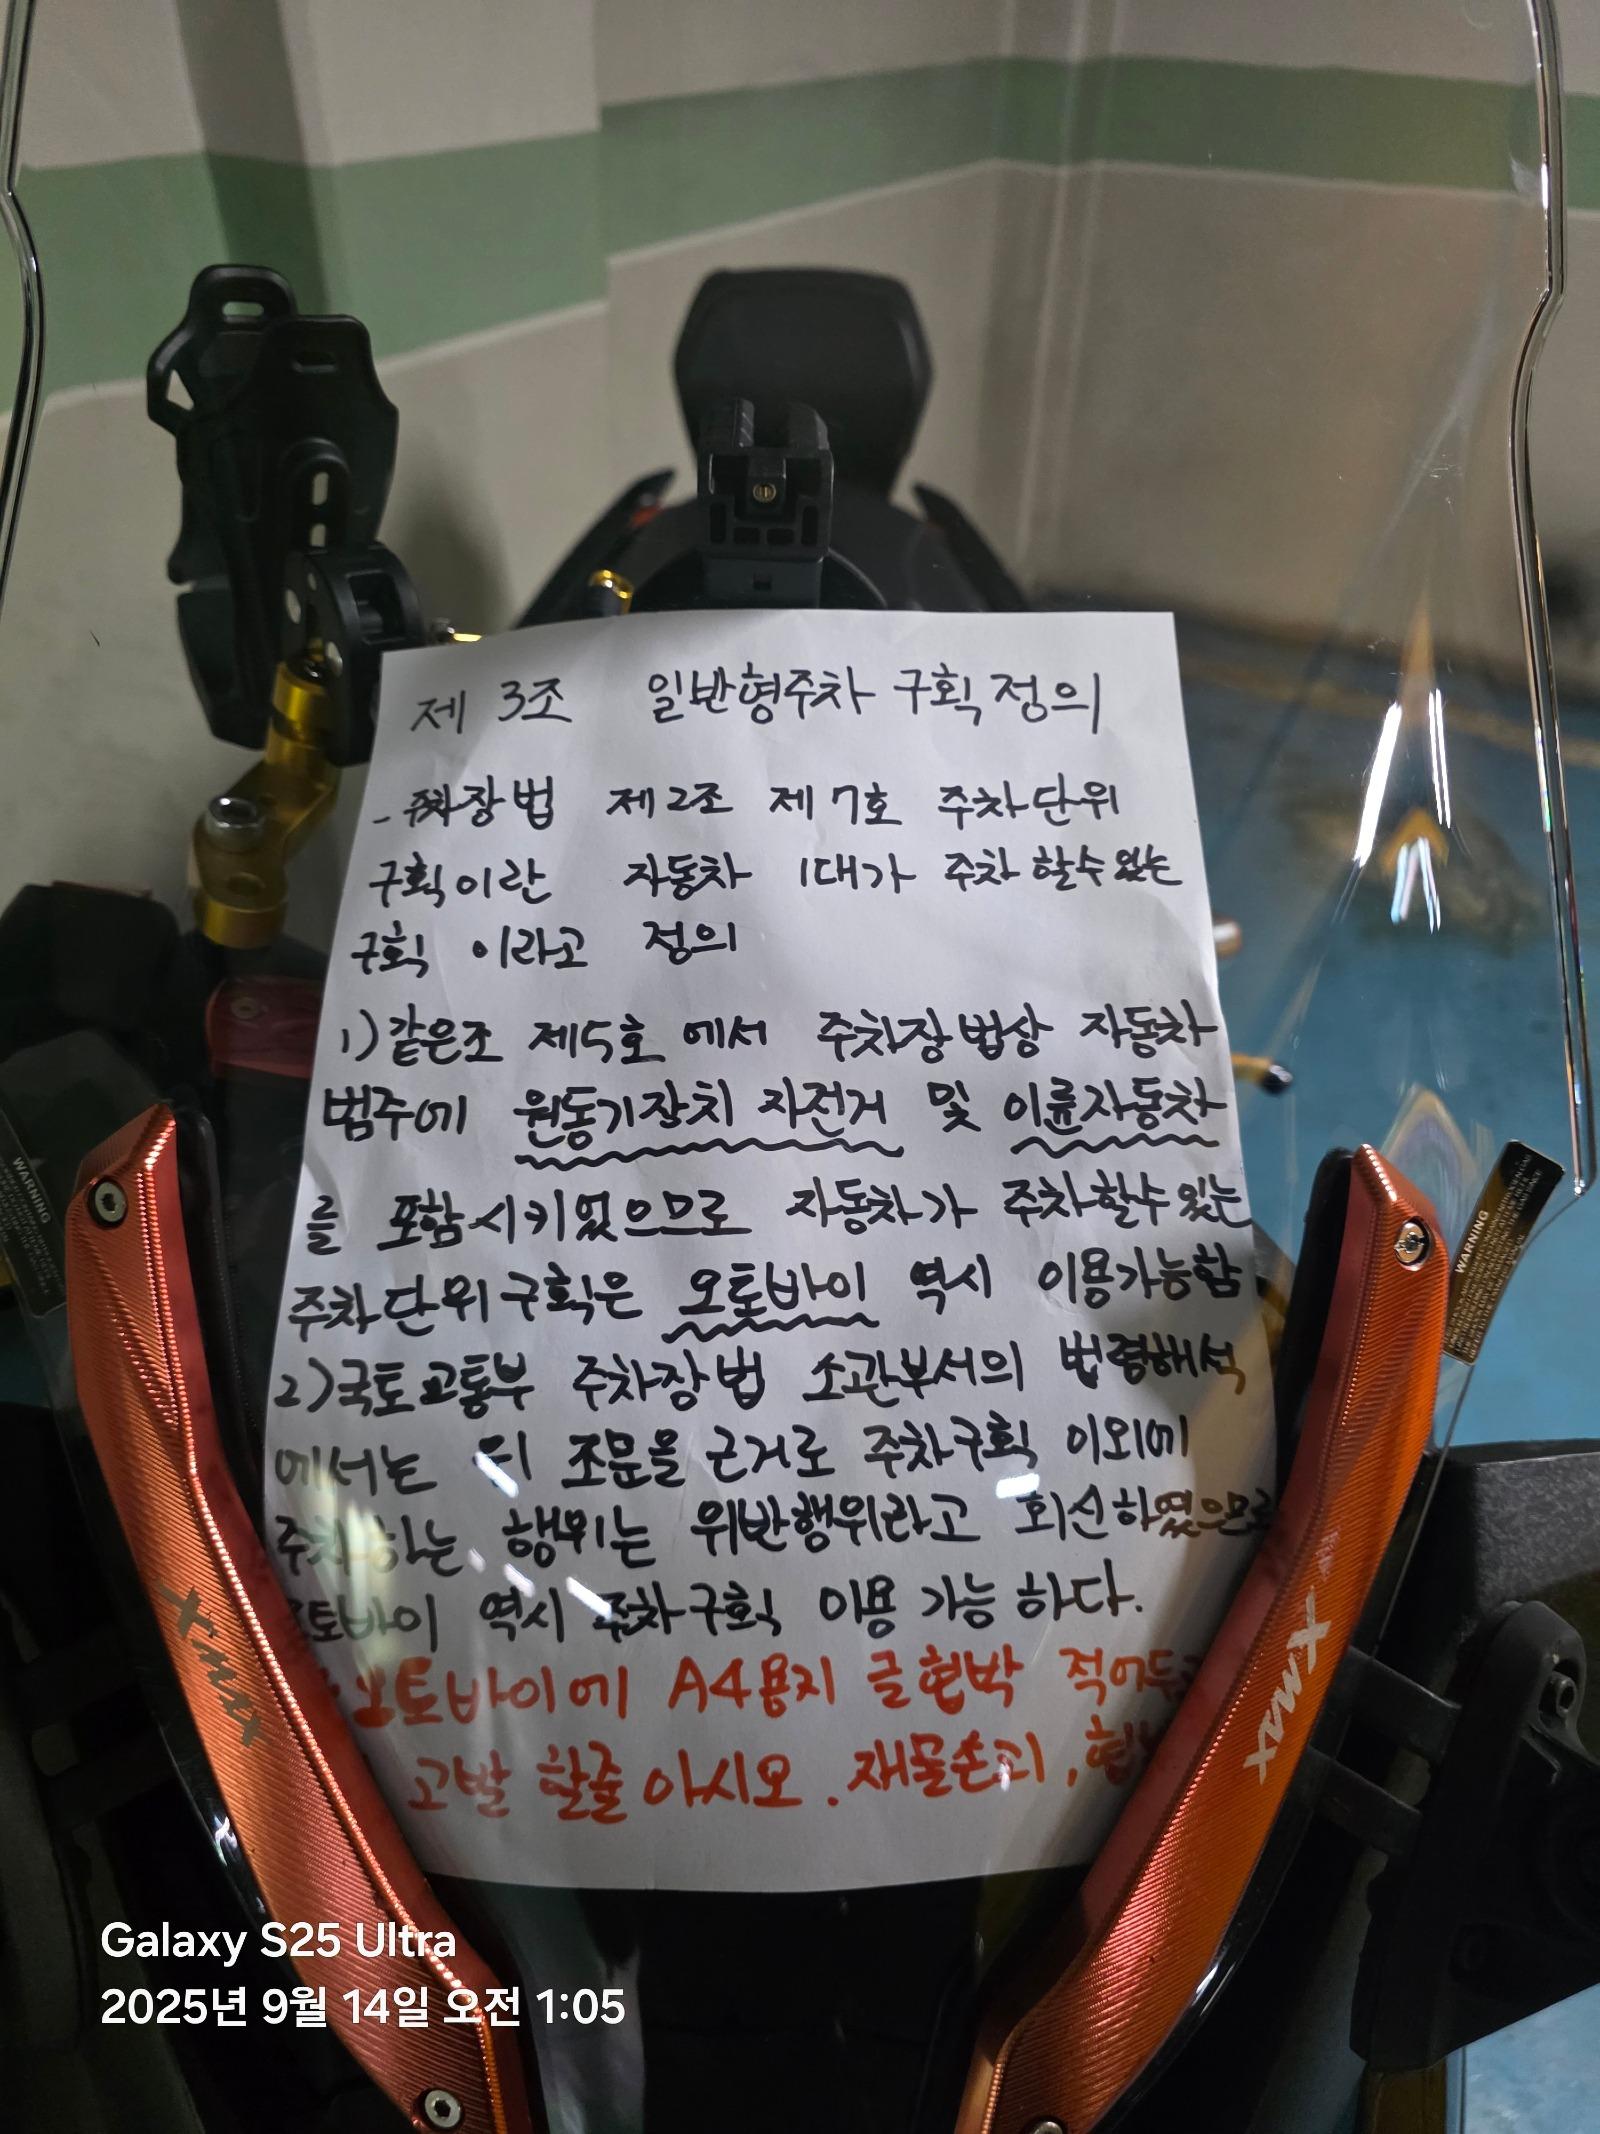 제 3조 일반형주차 구획 정의
- 주차장법 제2조 제7호 주차단위
구획이란 자동차 1대가 주차 할수 있는
구획 이라고 정의
1) 같은조 제5호 에서 주차장법상 자동차
범주에 원동기장치 자전거 및 이륜자동차
를 포함시키었으므로 자동차가 주차할수 있는
주차단위구획은 오토바이 역시 이용가능함
2) 국토교통부 주차장법 소관부서의 법령해석
에서는 위 조문을 근거로 주차구획 이외에
주차하는 행위는 위반행위라고 회신하였으므로
오토바이 역시 주차구획 이용 가능 하다.
오토바이에 A4용지 글 협박 적어두
고발 할줄 아시오. 재물손괴, 협
WARNING
WARNING
Xmax
Xmax
Galaxy S25 Ultra
2025년 9월 14일 오전 1:05